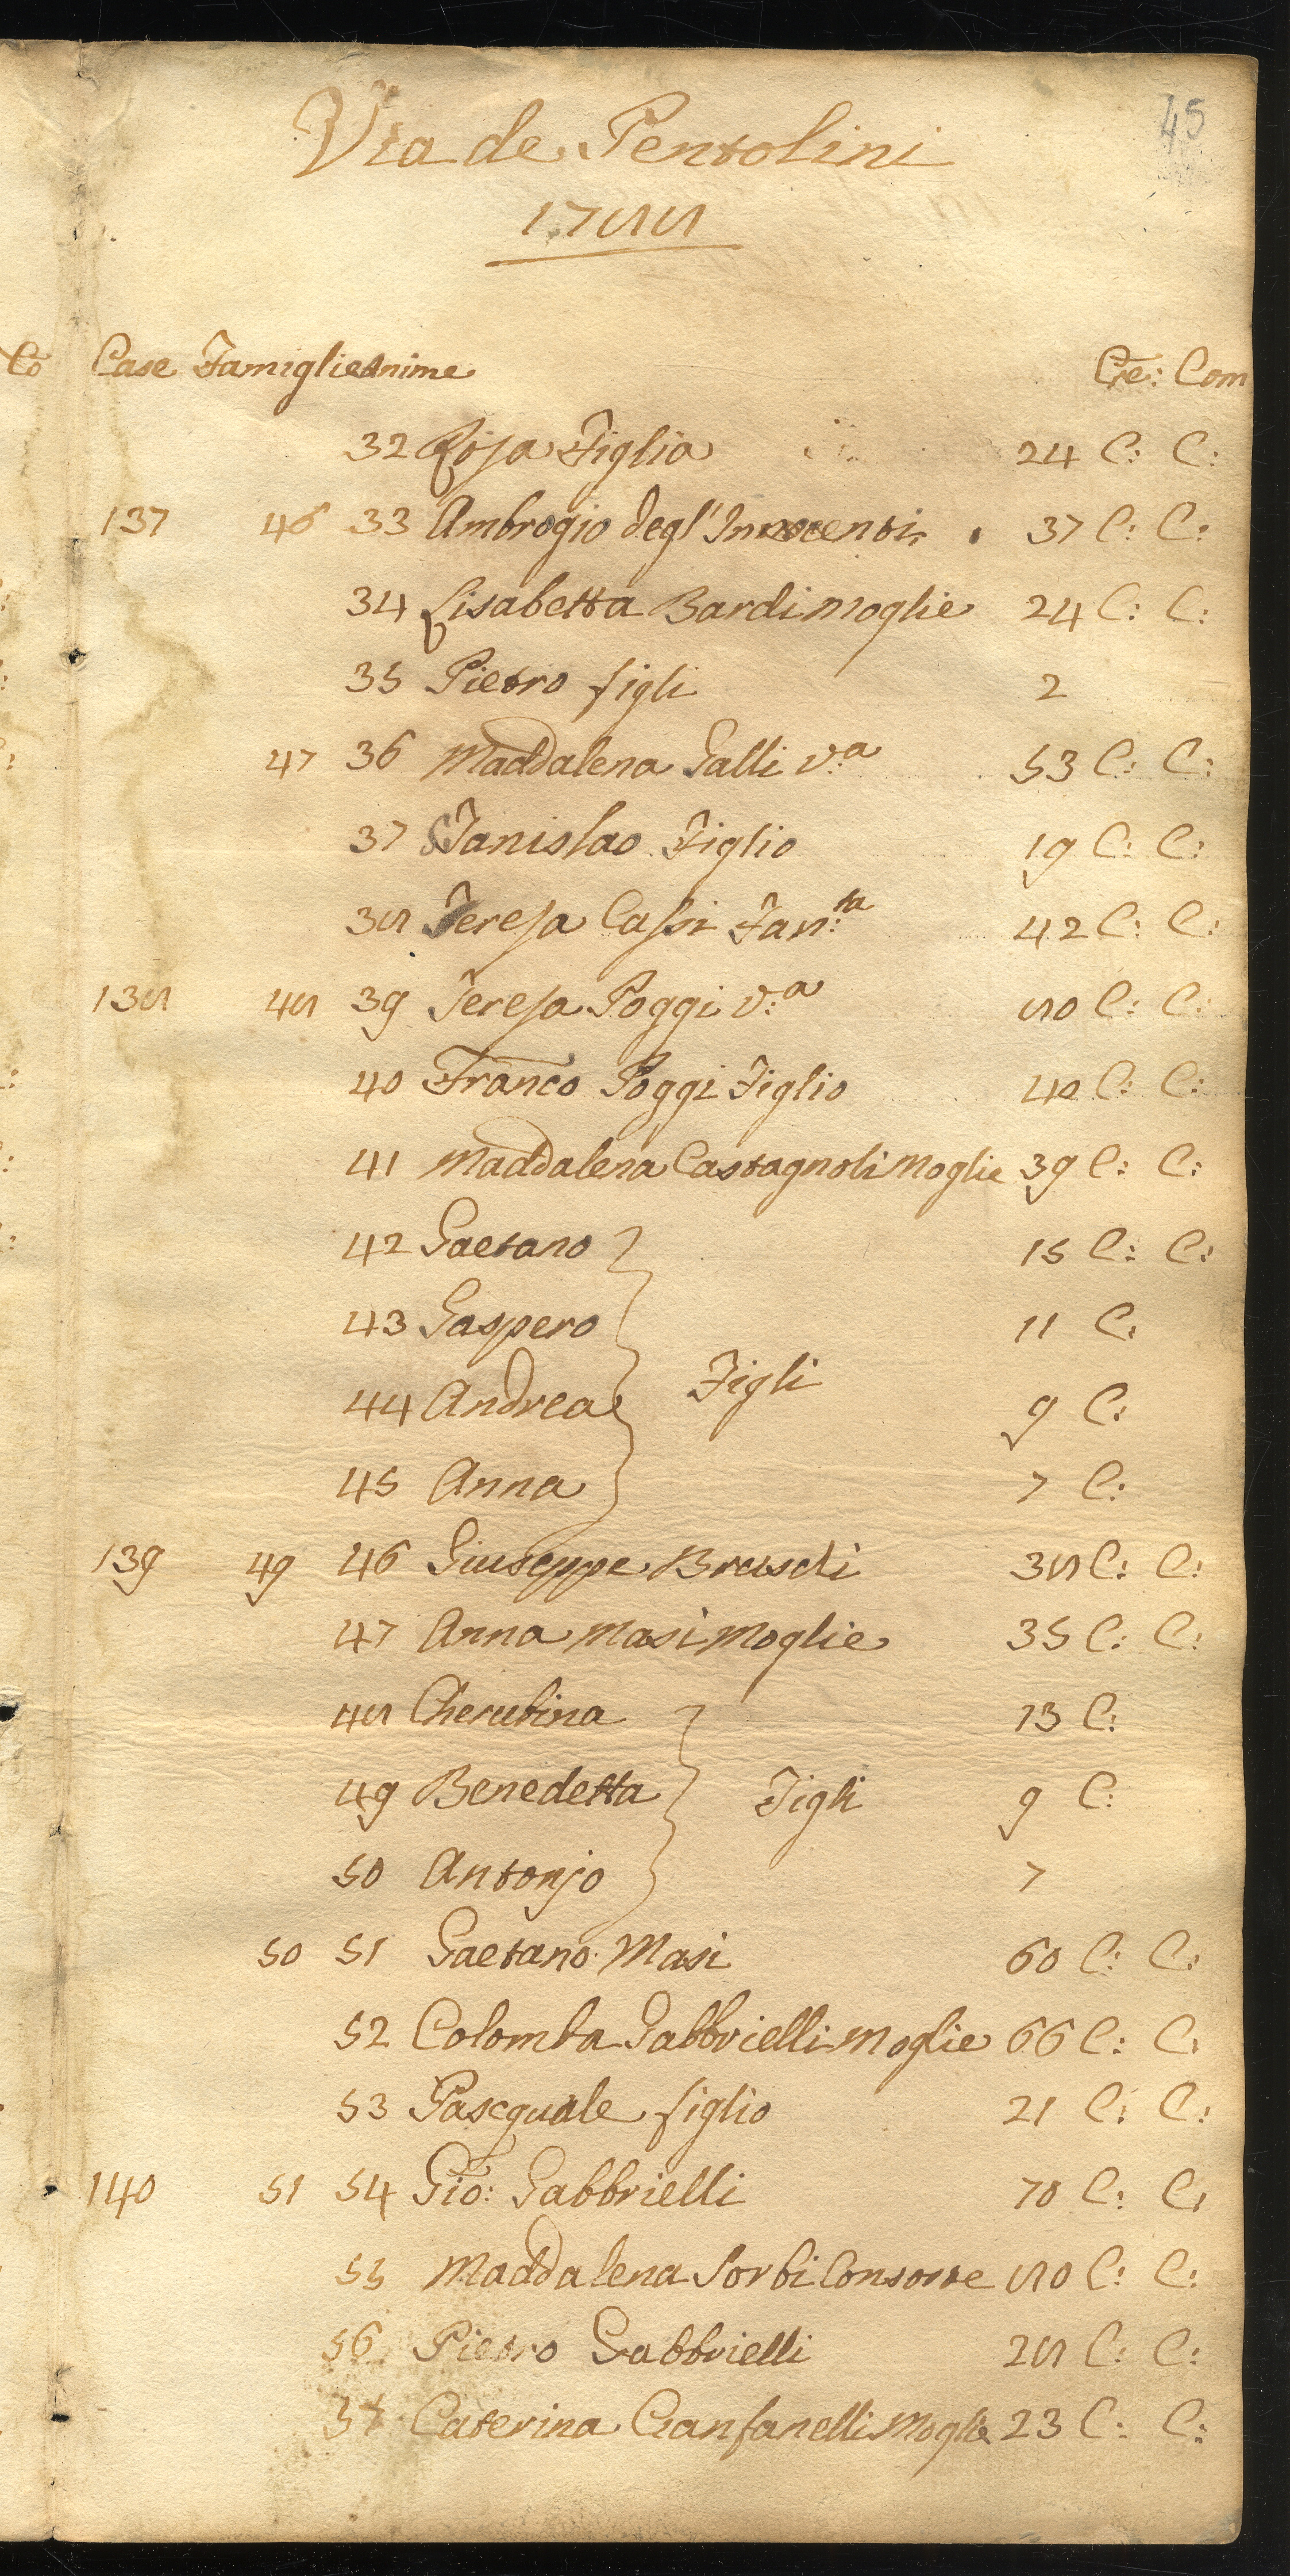 45
Via de Pentolini
1788
Co Case Famiglie Anime Cre: Com
32 Rosa Figlia 24 C: C:
137 46 33 Ambrogio degl'Innocenti 37 C: C:
34 Lisabetta Bardi Moglie 24 C: C:
35 Pietro figli 2
47 36 Maddalena Galli v:a 53 C: C:
37 Stanislao Figlio 19 C: C:
38 Teresa Cassi Fan:ta 42 C: C:
138 48 39 Teresa Poggi v:a 80 C: C:
40 Franco Poggi Figlio 40 C: C:
41 Maddalena Castagnoli Moglie 39 C: C:
42 Gaetano 15 C: C:
43 Gaspero 11 C:
Figli
44 Andrea 9 C:
45 Anna 7 C:
139 49 46 Giuseppe Bruschi 38 C: C:
47 Anna Masi Moglie 35 C: C:
48 Cherubina 13 C:
49 Benedetta Figli 9 C:
50 Antonjo 7
50 51 Gaetano Masi 60 C: C:
52 Colomba Gabbrielli Moglie 66 C: C:
53 Pasequale figlio 21 C: C:
140 51 54 Gio: Gabbrielli 70 C: C:
55 Maddalena Sorbi Consorte 80 C: C:
56 Pietro Gabbrielli 28 C: C:
57 Caterina Cianfanelli Moglie 23 C: C: